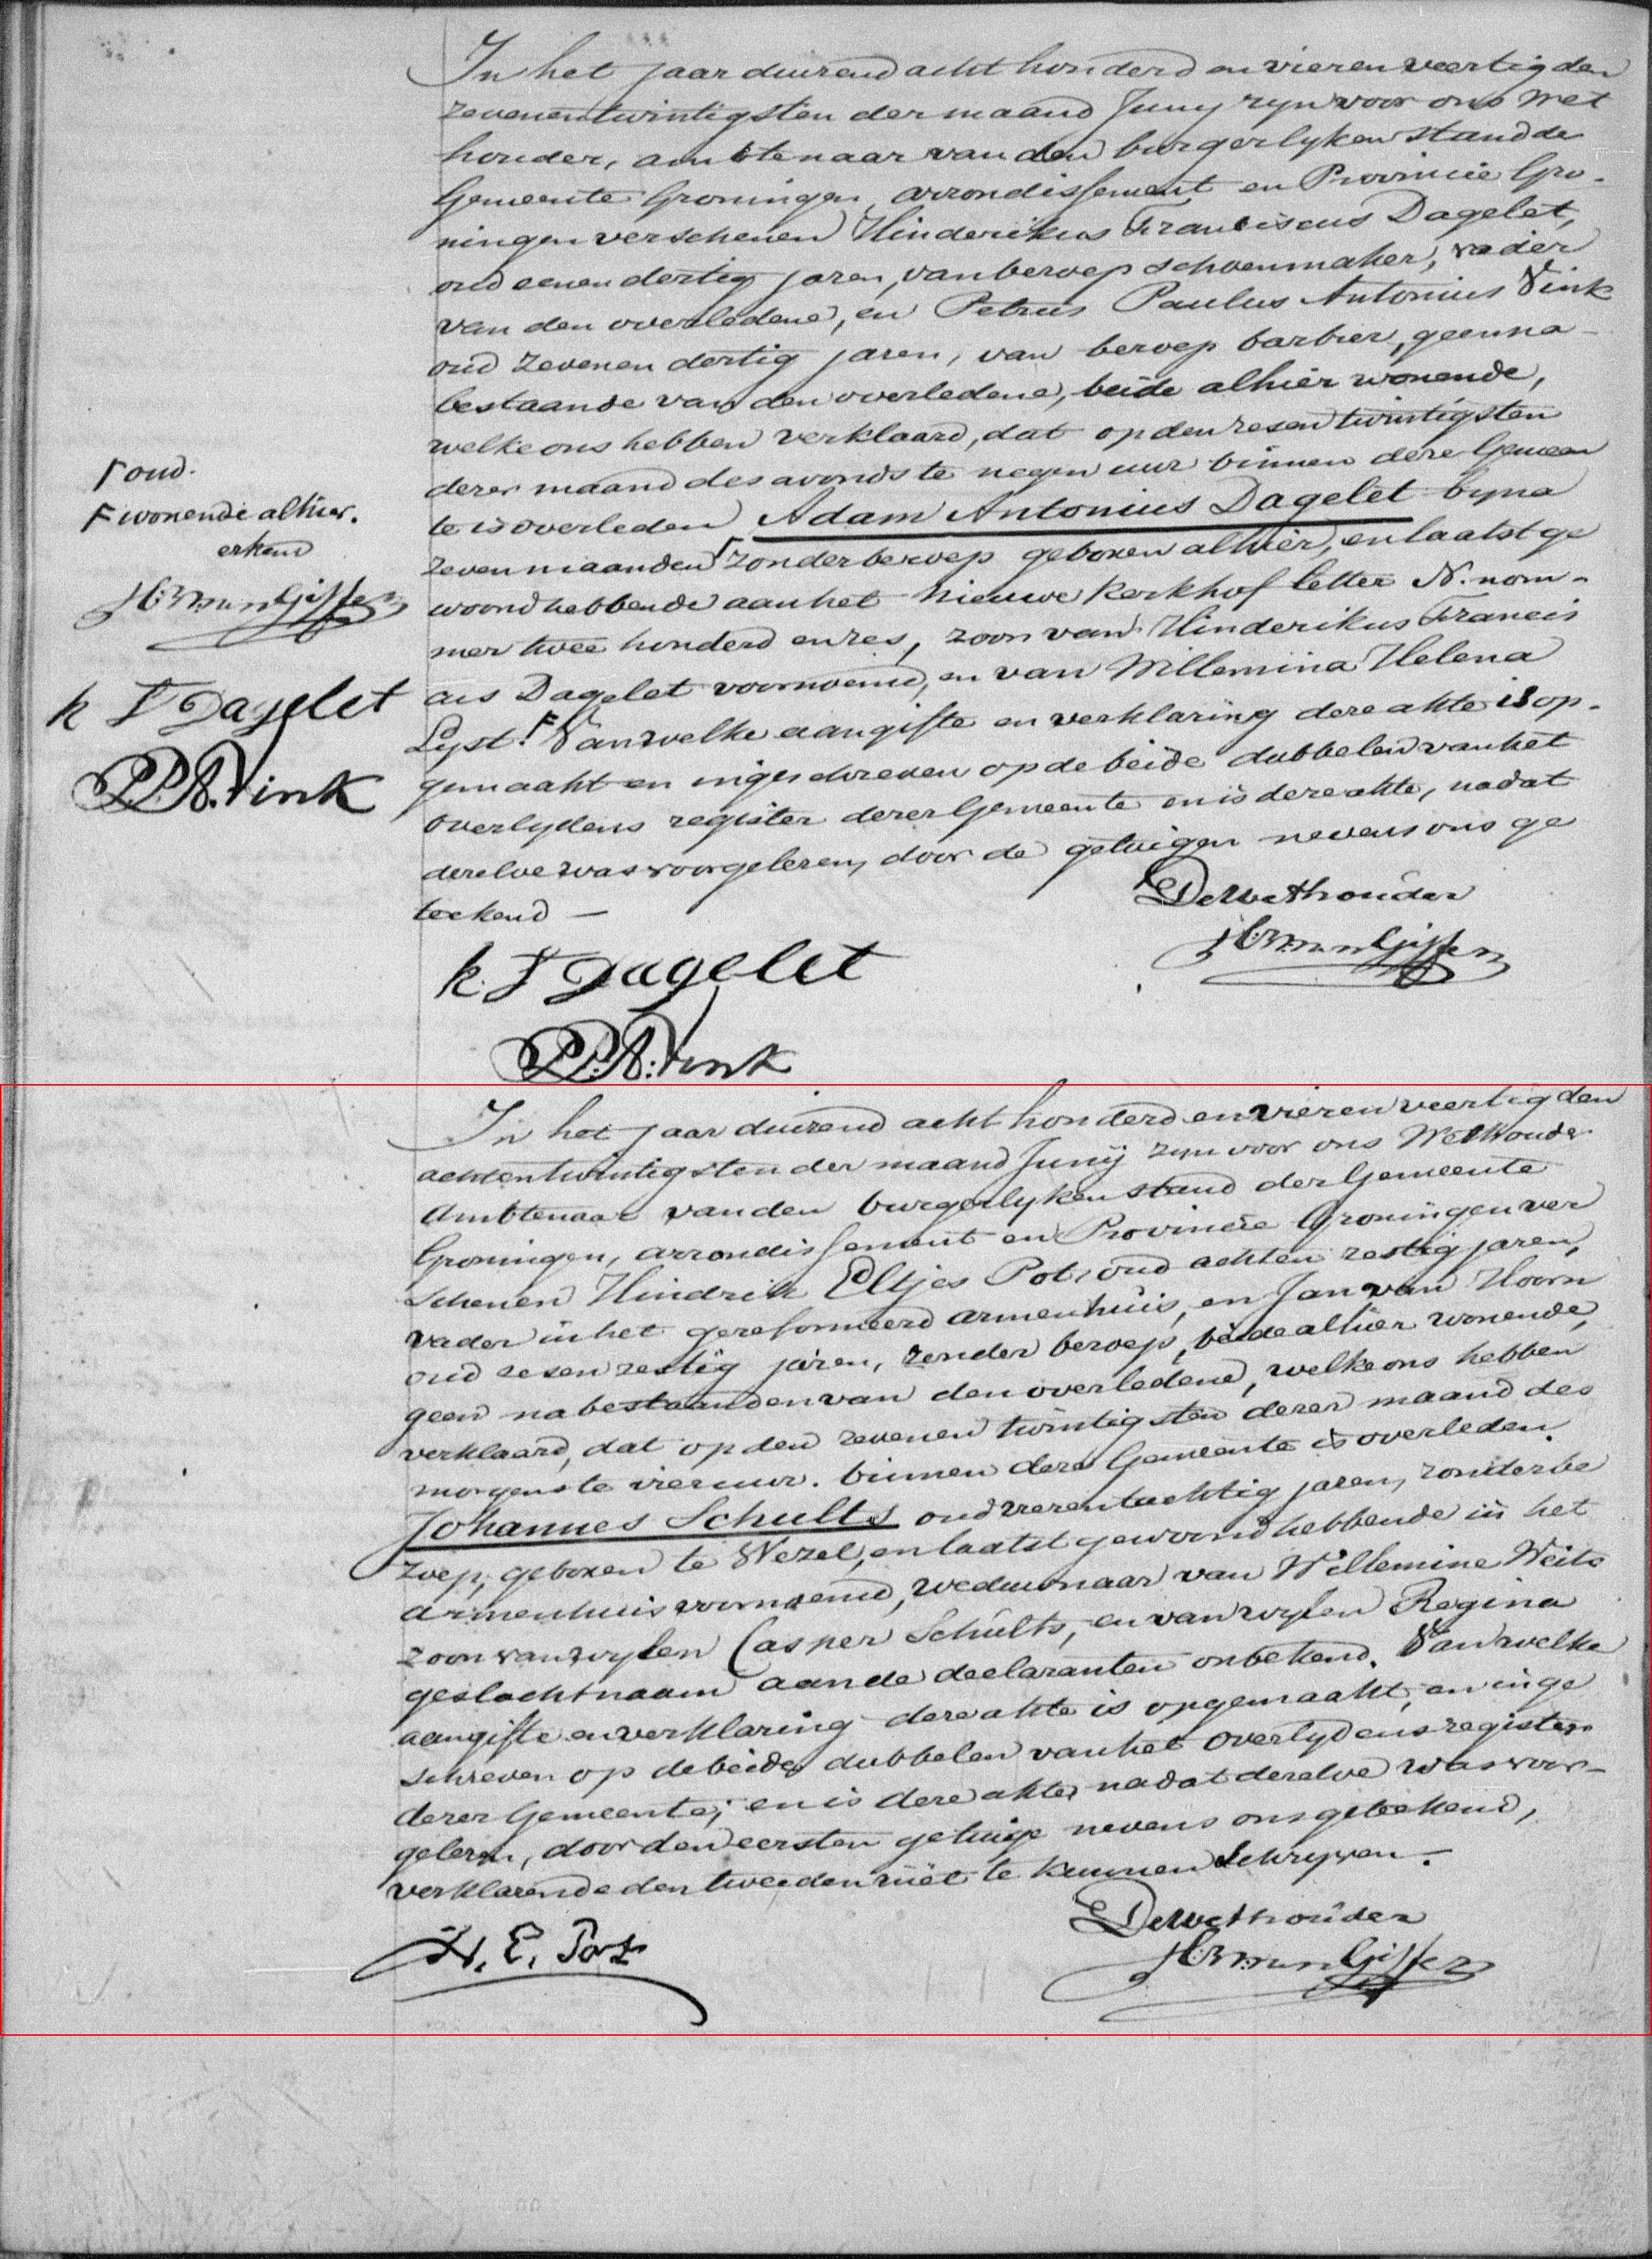 In het jaar duizend acht honderd en vieren veertig den
zevenentwintigsten der maand Juny zyn voor ons Wet
houder, ambtenaar van den burgerlyken stand de
Gemeente Groningen, arrondissement en Provincie Gro-
ningen verschenen Hinderikus Franciscus Dagelet,
oud eenendertig jaren, van beroep schoenmaker, vader
van den overledene, en Petrus Paulus Antonius Vink
oud zevenen dertig jaren, van beroep barbier, geen na-
bestaande van den overledene, beide alhier wonende,
welke ons hebben verklaard, dat op den zesen twintigsten
dezer maand des avonds te negen uur binnen deze Gemeen
te is overleden Adam Antonius Dagelet byna
zeven maanden zonder beroep geboren alhier, en laatst ge
woond hebbende aan het nieuwe kerkhof letter N. nom-
mer twee honderd en zes, zoon van Hinderikus Francis
cus Dagelet voornoemd, en van Willemina Helena
Lyst. Van welke aangifte en verklaring deze akte is op-
gemaakt en ingeschreven op de beide dubbelen van het
overlydens register dezer Gemeente en is deze akte, nadat
dezelve was voorgelezen, door de getuigen nevens ons ge
teekend —
De Wethouder
k. F Dagelet
P.P.A. Vink
oud.
wonende alhier.
erkend
k F Dagelet
P.P.A. Vink
In het jaar duizend acht honderd en vieren veertig den
achtentwintigsten der maand Junij zyn voor ons Wethouder
Ambtenaar van den burgerlyken stand der Gemeente
Groningen, arrondissement en Provincie Groningen ver
schenen Hindrik Eltjes Pot, oud achten zestig jaren,
vader in het gereformeerd armenhuis, en Jan van Hoorn
oud zesen zestig jaren, zonder beroep, beide alhier wonende,
geen nabestaanden van den overledene, welke ons hebben
verklaard, dat op den zevenen twintigsten dezer maand des
morgens te vier uur. binnen deze Gemeente is overleden
Johannes Schults oud vierentachtig jaren, zonder be
roep, geboren te Wezel, en laatst gewoond hebbende in het
armenhuis voornoemd, weduwnaar van Willemine Weits
zoon van wylen Casper Schults, en van wylen Regina
geslachtnaam aan de declaranten onbekend. Van welke
aangifte en verklaring deze akte is opgemaakt, en inge
schreven op de beide dubbelen van het overlydens register
dezer Gemeente; en is deze akte nadat dezelve was voor-
gelezen, door den eersten getuige nevens ons geteekend,
verklarende den tweeden niet te kunnen schryven.
De Wethouder
H. E. Pot